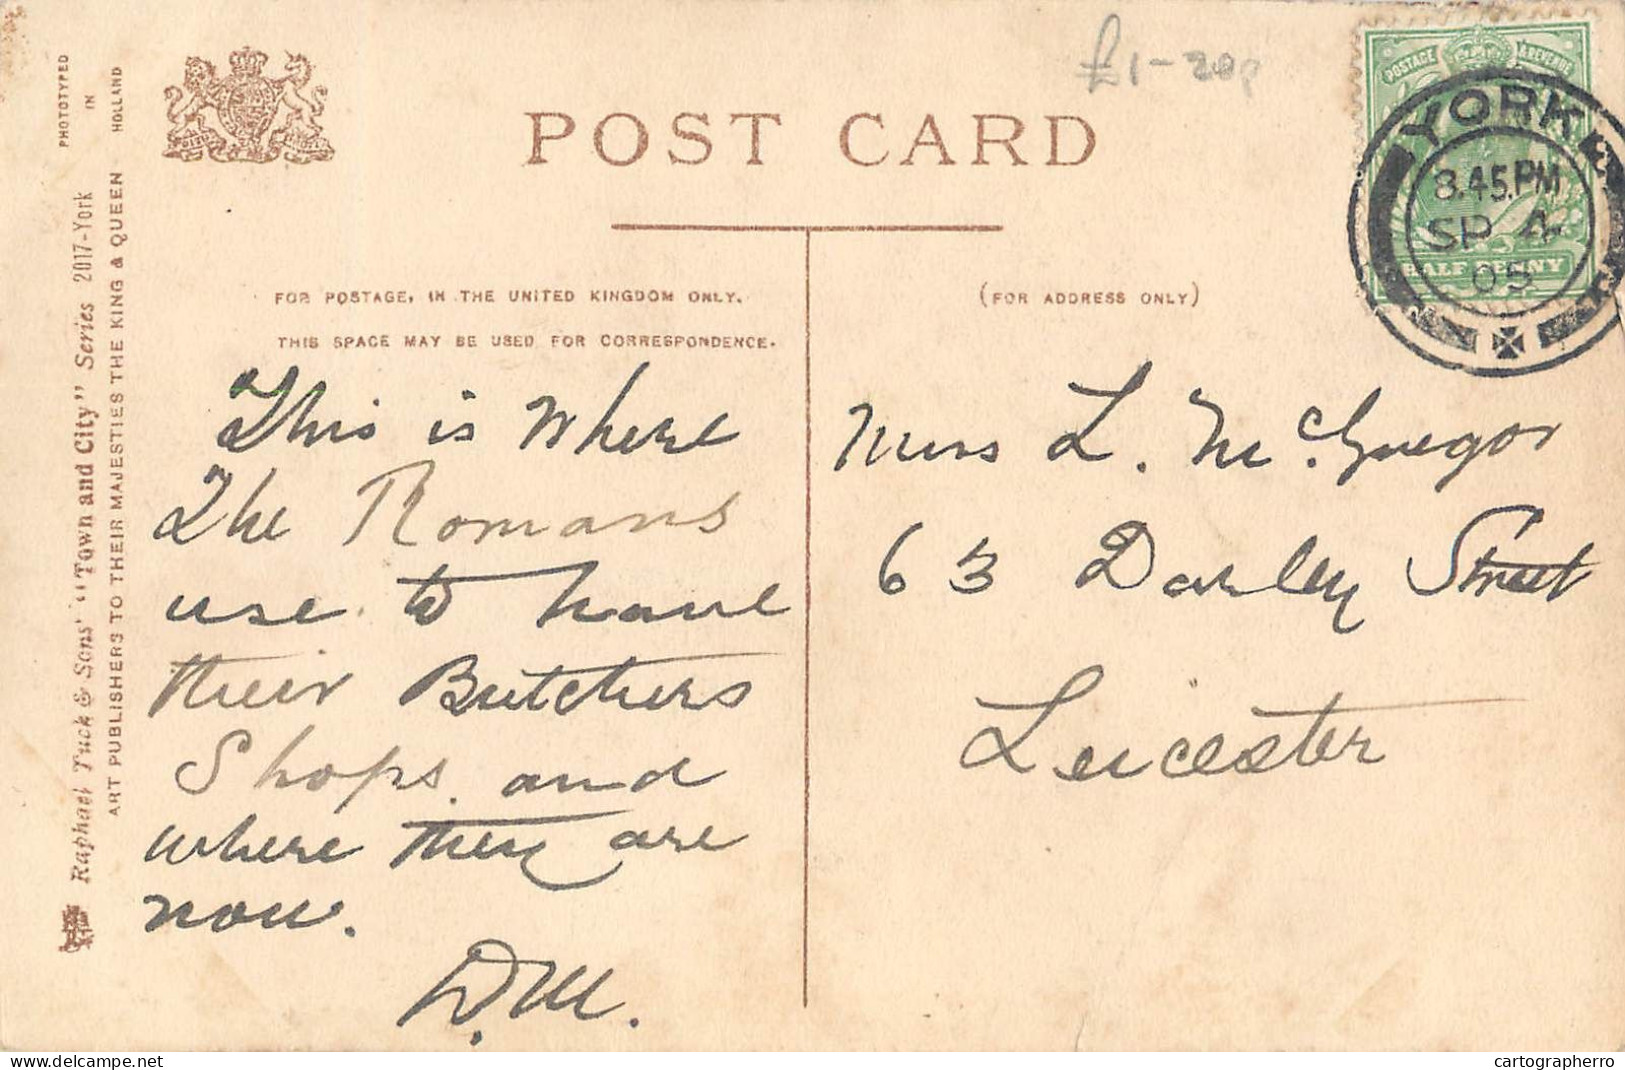 £1-20p
POST CARD
POSTAGE & REVENUE
HALF PENNY
YORK
8.45.PM
SP 4
05
PHOTOTYPED
IN
HOLLAND
Raphael Tuck & Sons' "Town and City" Series 2017-York
ART PUBLISHERS TO THEIR MAJESTIES THE KING & QUEEN
FOR POSTAGE, IN THE UNITED KINGDOM ONLY.
THIS SPACE MAY BE USED FOR CORRESPONDENCE.
(FOR ADDRESS ONLY)
This is where
The Romans
use to have
their Butchers
Shops. and
where they are
now.
D.M.
Miss L. McGregor
63 Darley Street
Leicester
cartographerro